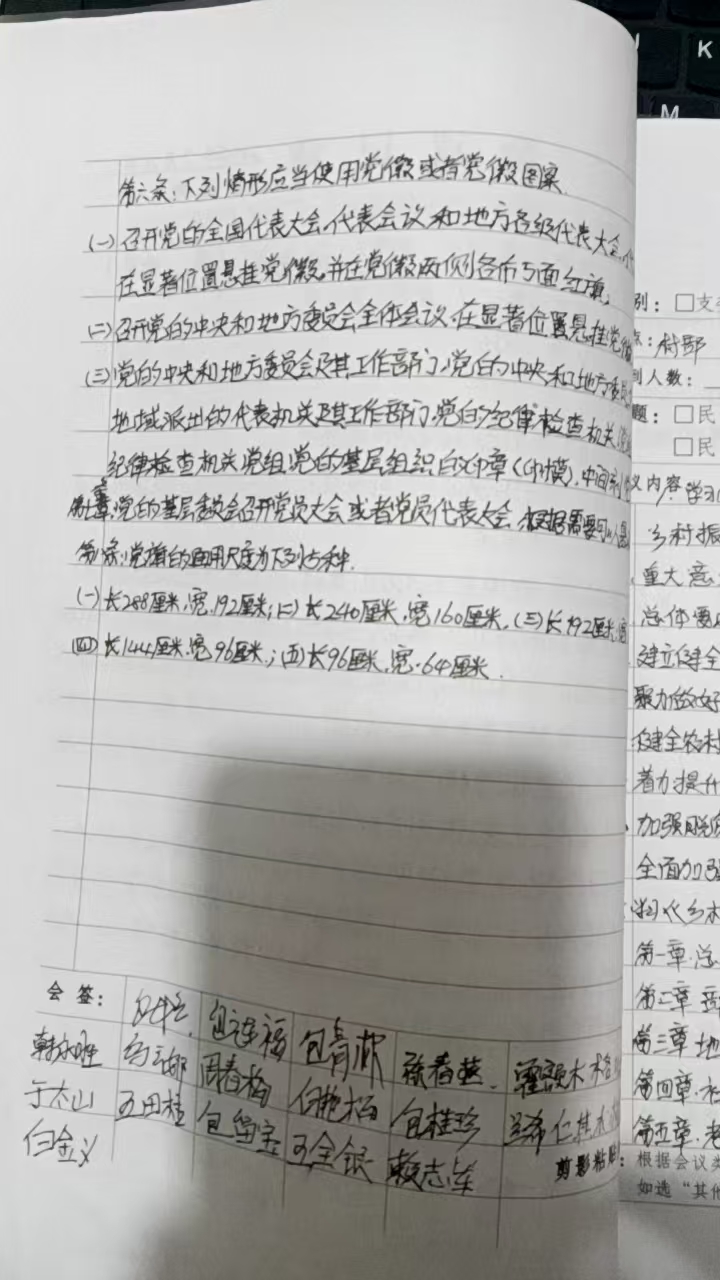 第六条:下列情形应当使用党徽或者党徽图案.
(一)召开党的全国代表大会、代表会议和地方各级代表大会、代
在显著位置悬挂党徽,并在党徽两侧各布5面红旗,
(二)召开党的中央和地方委员会全体会议,在显著位置悬挂党徽
(三)党的中央和地方委员会及其工作部门,党的中央和地方委员
地域派出的代表机关及其工作部门,党的纪律检查机关
纪律检查机关党组,党的基层组织的印章(印模),中间刻
党的基层委员会召开党员大会或者党员代表大会,根据需要可以悬
条:党旗的通用尺度为下列五种.
(一)长288厘米,宽192厘米;(二)长240厘米,宽160厘米,(三)长192厘米,宽
(四)长144厘米,宽96厘米;(五)长96厘米,宽64厘米.
会签:
包连福
包青
春燕
木格
周春梅
于太山
王田桂
包桂珍
仁桂木
白金义
王全银
赖志军
剪影粘贴:
别:□支
村部
到人数:
题:□民
□民
议内容:学习
乡村振
重大意
总体要
建立健全
聚力做好
健全农村
着力提升
加强脱贫
全面加强
第一章.总
第二章
第三章 地
第四章.社
第五章.
根据会议类
如选“其他
K
M